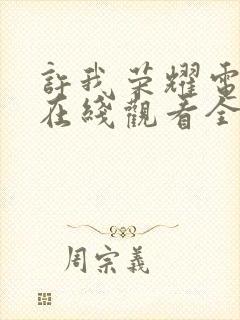 許我荣耀電
在綫觀看全
周宗義